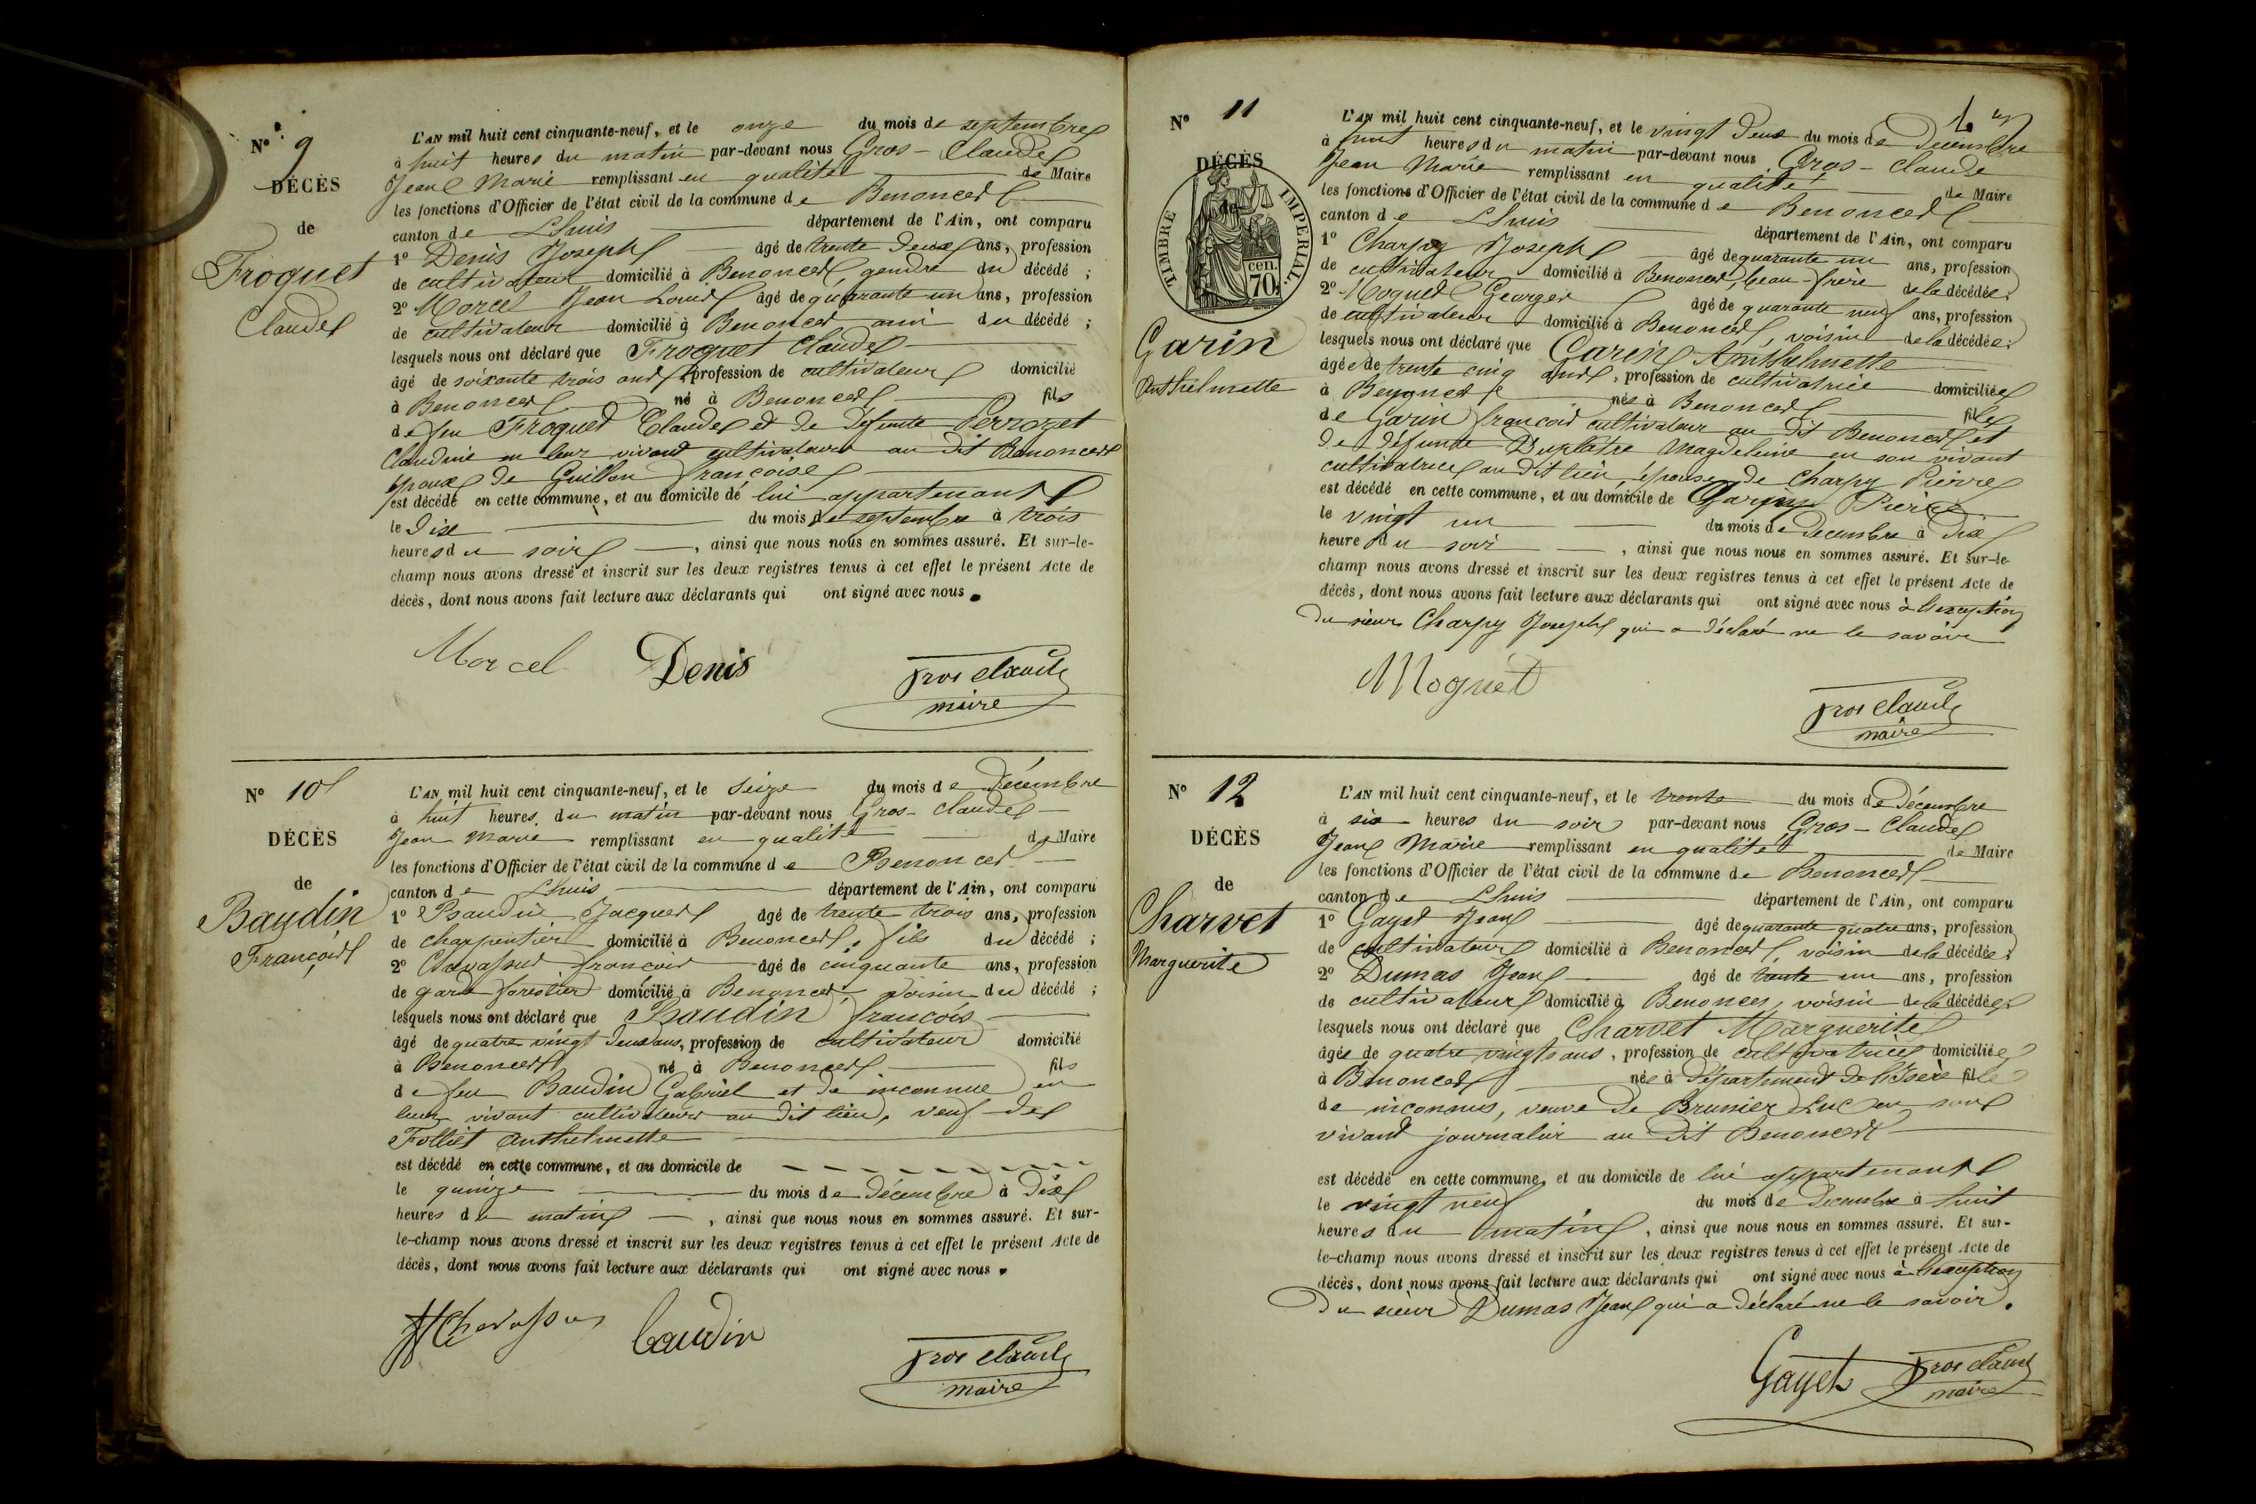 N° 9
DÉCÈS
de
Froquet
Claude
L'AN mil huit cent cinquante-neuf, et le onze du mois de septembre
à huit heures du matin par-devant nous Gros-Claude
Jean Marie remplissant en qualité de Maire
les fonctions d'Officier de l'état civil de la commune de Benonces
canton de Lhuis département de l'Ain, ont comparu
1° Denis Joseph âgé de trente deux ans, profession
de cultivateur domicilié à Benonces, gendre du décédé ;
2° Morcel Jean Louis âgé de quarante un ans, profession
de cultivateur domicilié à Benonces ami du décédé ;
lesquels nous ont déclaré que Froquet Claude
âgé de soixante trois ans, profession de cultivateur domicilié
à Benonces né à Benonces fils
de feu Froquet Claude et de défunte Perrozet
Claudine en leur vivant cultivateurs au dit Benonces
époux de Guillon françoise
est décédé en cette commune, et au domicile de lui appartenant
le dix du mois de septembre à trois
heures du soir, ainsi que nous nous en sommes assuré. Et sur-le-
champ nous avons dressé et inscrit sur les deux registres tenus à cet effet le présent Acte de
décès, dont nous avons fait lecture aux déclarants qui ont signé avec nous.
Morcel Denis gros claude
maire
N° 10
DÉCÈS
de
Baudin
François
L'AN mil huit cent cinquante-neuf, et le seize du mois de Décembre
à huit heures du matin par-devant nous Gros-Claude
Jean Marie remplissant en qualité de Maire
les fonctions d'Officier de l'état civil de la commune de Benonces
canton de Lhuis département de l'Ain, ont comparu
1° Baudin Jacques âgé de trente trois ans, profession
de charpentier domicilié à Benonces, fils du décédé ;
2° Chavassus françois âgé de cinquante ans, profession
de garde forestier domicilié à Benonces, voisin du décédé ;
lesquels nous ont déclaré que Baudin françois
âgé de quatre vingt deux ans, profession de cultivateur domicilié
à Benonces né à Benonces fils
de feu Baudin Gabriel et de inconnue en
leur vivant cultivateurs au dit lieu, veuf de
Folliet anthelmette
est décédé en cette commune, et au domicile de
le quinze du mois de Décembre à Dix
heures du matin, ainsi que nous nous en sommes assuré. Et sur-
le-champ nous avons dressé et inscrit sur les deux registres tenus à cet effet le présent Acte de
décès, dont nous avons fait lecture aux déclarants qui ont signé avec nous.
Chavassus baudin gros claude
maire
N° 11
DÉCÈS
de
TIMBRE IMPERIAL
cen.
70
Garin
Anthelmette
L'AN mil huit cent cinquante-neuf, et le vingt deux du mois de Décembre
à huit heures du matin par-devant nous Gros-Claude
Jean Marie remplissant en qualité de Maire
les fonctions d'Officier de l'état civil de la commune de Benonces
canton de Lhuis département de l'Ain, ont comparu
1° Charpy Joseph âgé de quarante un ans, profession
de cultivateur domicilié à Benonces, beau-frère de la décédée ;
2° Moquet Georges âgé de quarante neuf ans, profession
de cultivateur domicilié à Benonces, voisin de la décédée ;
lesquels nous ont déclaré que Garin Anthelmette
âgée de trente cinq ans, profession de cultivatrice domiciliée
à Benonces née à Benonces fille
de Garin françois cultivateur au dit Benonces et
de défunte Duplatre Magdeleine en son vivant
cultivatrice au dit lieu, épouse de Charpy Pierre
est décédé en cette commune, et au domicile de Charpy Pierre
le vingt un du mois de Décembre à Dix
heure du soir, ainsi que nous nous en sommes assuré. Et sur-le-
champ nous avons dressé et inscrit sur les deux registres tenus à cet effet le présent Acte de
décès, dont nous avons fait lecture aux déclarants qui ont signé avec nous à l'exception
du sieur Charpy Joseph qui a déclaré ne le savoir
Moquet gros claude
maire
N° 12
DÉCÈS
de
Charvet
Marguerite
L'AN mil huit cent cinquante-neuf, et le trente du mois de Décembre
à six heures du soir par-devant nous Gros-Claude
Jean Marie remplissant en qualité de Maire
les fonctions d'Officier de l'état civil de la commune de Benonces
canton de Lhuis département de l'Ain, ont comparu
1° Gayet Jean âgé de quarante quatre ans, profession
de cultivateur domicilié à Benonces, voisin de la décédée ;
2° Dumas Jean âgé de trente un ans, profession
de cultivateur domicilié à Benonces, voisin de la décédée ;
lesquels nous ont déclaré que Charvet Marguerite
âgée de quatre vingts ans, profession de cultivatrice domiciliée
à Benonces née à département de l'Isère fille
de inconnus, veuve de Brunier Luc en son
vivant journalier au dit Benonces
est décédé en cette commune, et au domicile de lui appartenant
le vingt neuf du mois de Decembre à huit
heures du matin, ainsi que nous nous en sommes assuré. Et sur-
le-champ nous avons dressé et inscrit sur les deux registres tenus à cet effet le présent Acte de
décès, dont nous avons fait lecture aux déclarants qui ont signé avec nous à l'exception
du sieur Dumas Jean qui a déclaré ne le savoir.
Gayet gros claude
maire